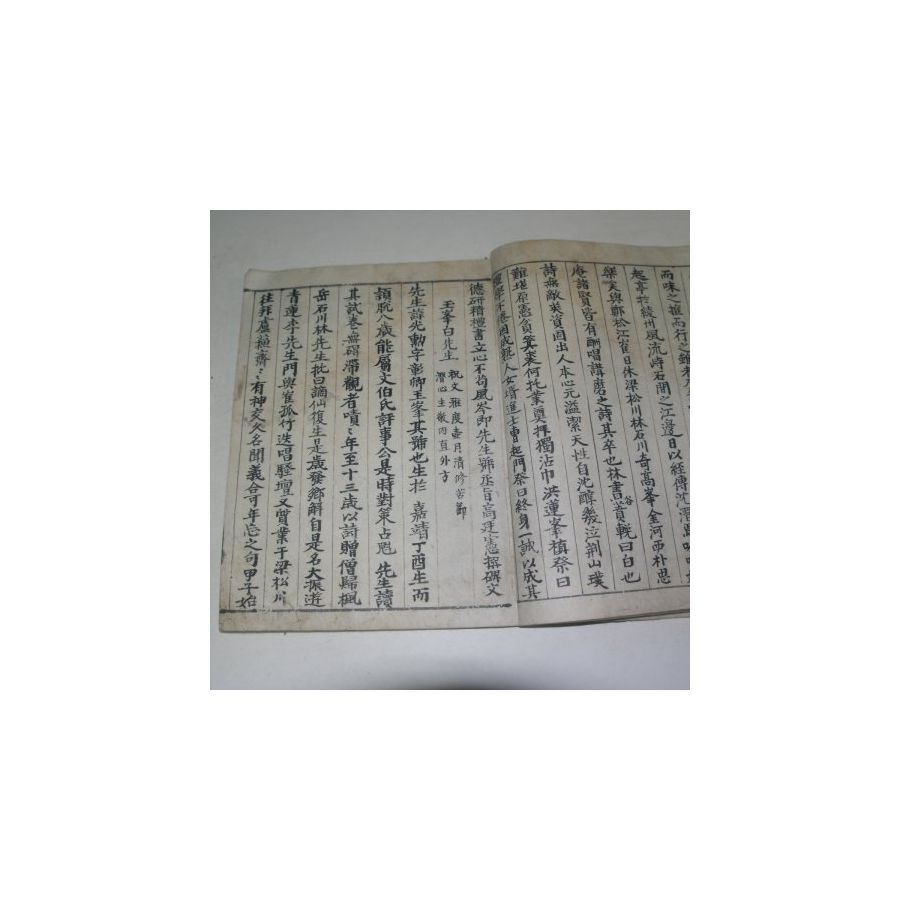 而味之推而行之
起亭於綾州風流峙石間之江邊日以經傳沈潛
樂天與鄭松江崔日休梁松川林石川奇高峯金河西朴思
庵諸賢皆有酬唱講磨之詩其卒也林書濆輓曰白也
谷
詩無敵英資固出人本心元溢潔天性自沈醇幾泣荊山璞
難堪原憲貧箕裘何托業奠拜獨沾巾洪蓮峯楨祭曰
女壻進士曾起門祭曰終身一誠以成其
德研精禮書立心不苟風岑即先生號丞旨高廷憲撰碑文
玉峯白先生
祝文 雅度壺月淸修苦節
潛心主敬內直外方
先生諱光勳字彰卿玉峯其號也生於 嘉靖丁酉生而
頴脫八歲能屬文伯氏評事公是時對策占魁 先生讀
其試卷無碍滯觀者嘖〻年至十三歲以詩贈僧歸楓
岳石川林先生批曰謫仙復生是歲發鄕解自是名大振遊
靑蓮李先生門與崔孤竹迭唱騷壇又質業于梁松川
往拜盧蘇齋〻有神交久名聞義合可年忘之句甲子始